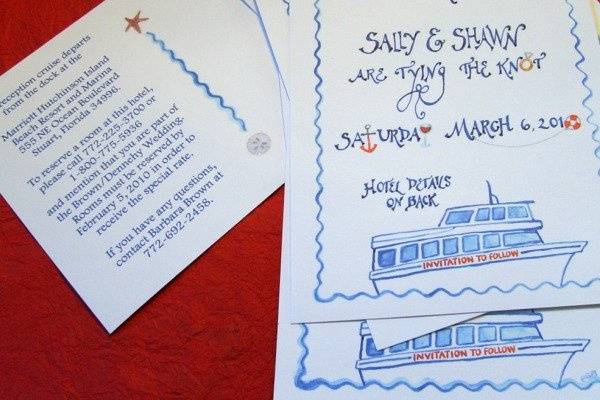 reception cruise departs
from the dock at the
Marriott Hutchinson Island
Beach Resort and Marina
555 NE Ocean Boulevard
Stuart, Florida 34996.
To reserve a room at this hotel,
please call 772-225-3700 or
1-800-775-5936
and mention that you are part of
the Brown/Dennehy Wedding.
Rooms must be reserved by
February 5, 2010 in order to
receive the special rate.
If you have any questions,
contact Barbara Brown at
772-692-2458.
SALLY & SHAWN
ARE TYING THE KNOT
SATURDAY MARCH 6, 2010
HOTEL DETAILS
ON BACK
INVITATION TO FOLLOW
INVITATION TO FOLLOW